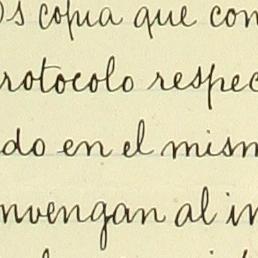 os copia que con
rotocolo respec
do en el mism
nvengan al in